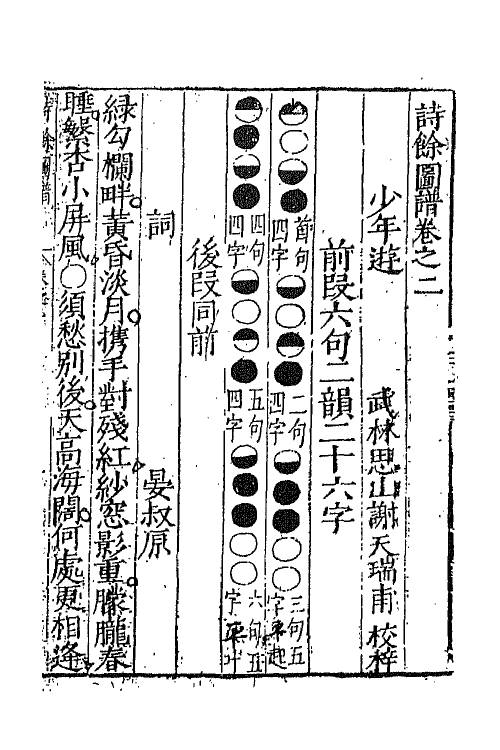 詩餘圖譜卷之二
少年遊 武林思山謝天瑞甫 校梓
前段六句二韻二十六字
首句四字 二句四字 三句五字平起
四句四字 五句四字 六句五字平叶
後段同前
詞 晏叔原
綠勾欄畔黃昏淡月攜手對殘紅紗窓影重朦朧春
睡繁杏小屏風〇須愁別後天高海闊何處更相逢
詩餘圖譜